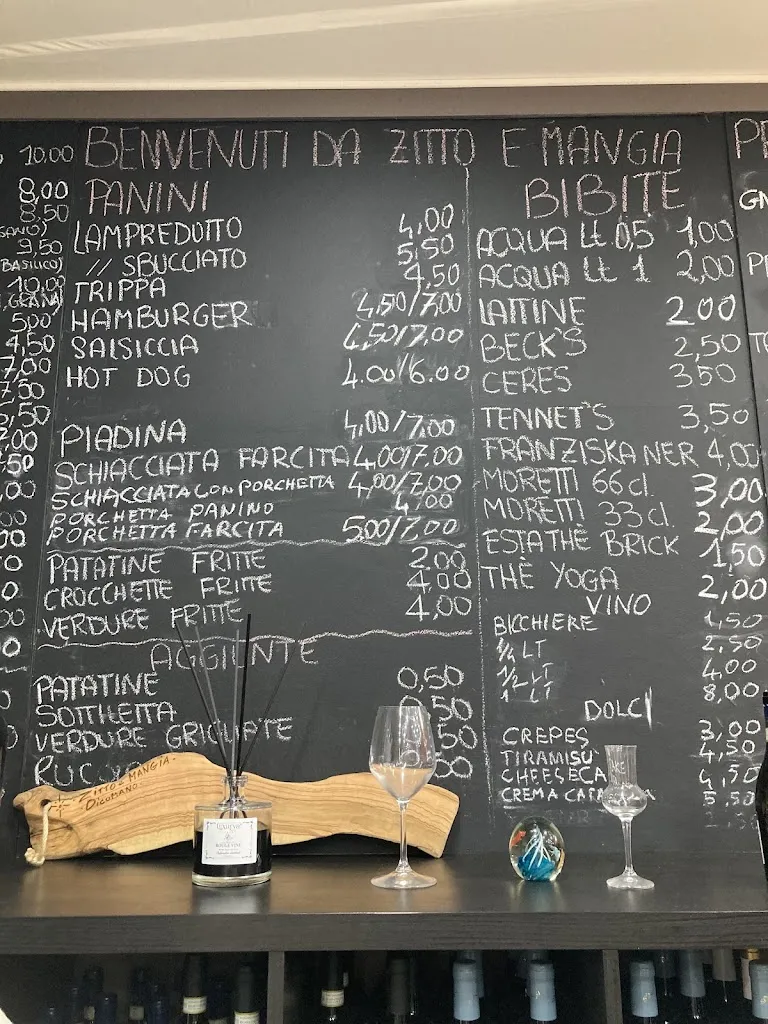 BENVENUTI DA ZITTO E MANGIA
10,00
8,00
8,50
9,50
BASILICO)
10,00
GRANA)
5,00
4,50
7,00
7,50
PANINI
LAMPREDOTTO 4,00
// SBUCCIATO 5,50
TRIPPA 4,50
HAMBURGER 4,50/7,00
SALSICCIA 4,50/7,00
HOT DOG 4.00/6.00
PIADINA 4,00/7,00
SCHIACCIATA FARCITA 4,00/7,00
SCHIACCIATA CON PORCHETTA 4,00/7,00
PORCHETTA PANINO 4,00
PORCHETTA FARCITA 5,00/7,00
PATATINE FRITTE 2,00
CROCCHETTE FRITTE 4,00
VERDURE FRITTE 4,00
AGGIUNTE
PATATINE 0,50
SOTTILETTA 50
VERDURE GRIGLIATE 50
BIBITE
ACQUA LT 0,5 1,00
ACQUA LT 1 2,00
LATTINE 2,00
BECK'S 2,50
CERES 3,50
TENNET'S 3,50
FRANZISKANER 4,00
MORETTI 66 cl. 3,00
MORETTI 33 cl. 2,00
ESTATHE BRICK 1,50
THE YOGA 2,00
VINO
BICCHIERE 1,50
1/4 LT 2,50
1/2 LT 4,00
1 LT 8,00
DOLCI
CREPES 3,00
TIRAMISU' 4,50
CHEESECA 4,50
CREMA CATA 5,50
ZITTO E MANGIA.
DICOMANO.